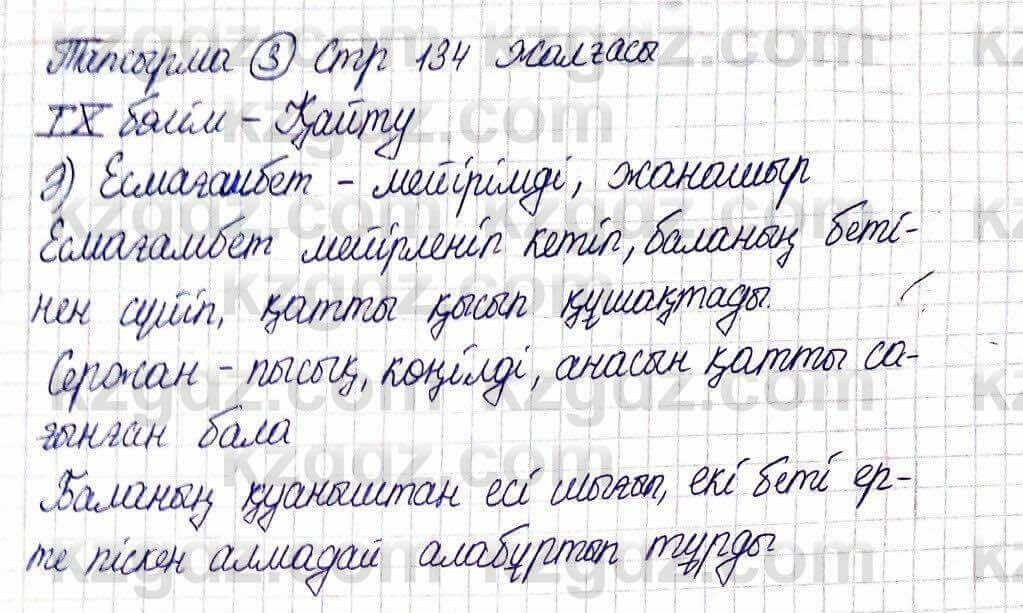 Тапсырма 3 Стр 134 жалғасы
IX бөлім - Қайту
ә) Есмағамбет - мейірімді, жанашыр
Есмағамбет мейірленіп кетіп, баланың беті-
нен сүйіп, қатты қысып құшақтады.
Серожан - пысық, көңілді, анасын қатты са-
ғынған бала
Баланың қуаныштан есі шығып, екі беті ер-
те піскен алмадай алабұртып тұрды
kzgdz.com